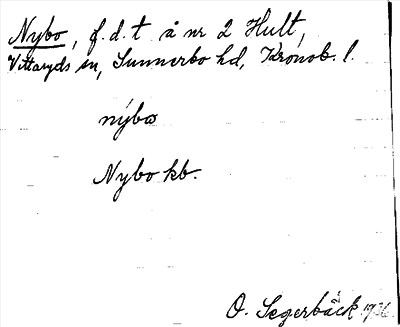 Nybo, f.d.t å nr 2 Hult,
Vittaryds sn, Sunnerbo hd, Kronob. l.
nýbo
Nybo kb.
O. Segerbäck 1936